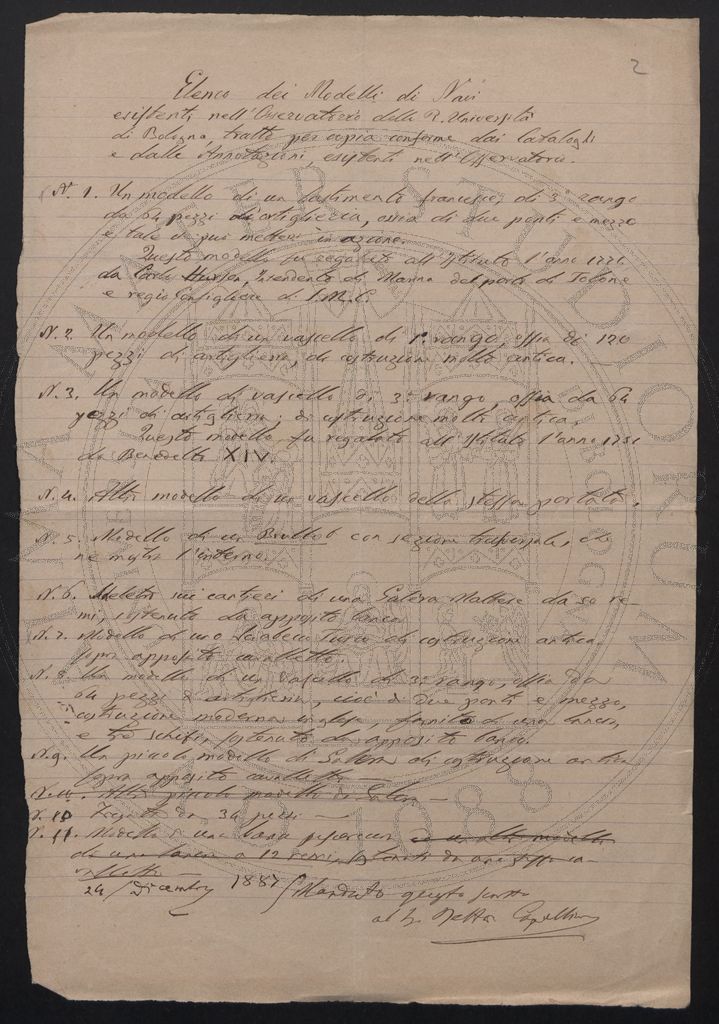 2
Elenco dei Modelli di Navi
esistenti nell'Osservatorio della R. Università
di Bologna, tratto per copia conforme dai Cataloghi
e dalle Annotazioni, esistenti nell'Osservatorio.
N. 1. Un modello di un bastimento francese, di 3° rango
da 64 pezzi di artiglieria, ossia di due ponti e mezzo
e tale da poi mettersi in azione.
Questo modello fu regalato all'Istituto l'anno
da Carlo Intendente di Marina del porto di Tolone
e regio Consigliere di S.M.C.
N. 2. Un modello di un vascello di 1° rango, ossia di 120
pezzi di artiglieria, di costruzione molto antica.
N. 3. Un modello di vascello di 3° rango, ossia da 64
pezzi di artiglieria; di costruzione molto antica.
Questo modello fu regalato all'Istituto l'anno 1751
da Benedetto XIV.
N. 4. Altro modello di un vascello della stessa portata.
N. 5. Modello di un con sezione trasversale, che
ne mostra l'interno.
N. 6. sui cantieri di una Galera Maltese da 50 re-
mi, sostenuta da apposito banco.
N. 7. Modello di uno Sciabecco Turco di costruzione antica
sopra apposito cavalletto.
N. 8. Un modello di un Vascello di 3° rango, ossia da
64 pezzi di artiglieria, cioè di due ponti e mezzo,
costruzione moderna inglese, fornito di una lancia,
e schifi, sostenuto da apposito banco.
N. 9. Un piccolo modello di Galera di costruzione antica
sopra apposito cavalletto —
Altri piccoli modelli di Galera —
N. 10 Fregata da 34 pezzi —
N. 11. Modello di una barca ed un altro modello
di una lancia a 12 remi, sostenuti da apposito ca-
valletto —
24/Dicembre 1887 / Mandato questo scritto
al Capellini